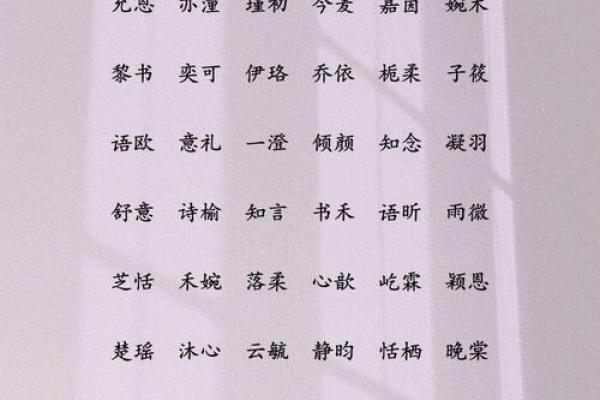 允恩 亦潼 瑾初 今麦 嘉茵
黎书 奕可 伊珞 乔依 栀柔 子筱
语欧 意礼 一澄 倾颜 知念 凝羽
舒意 诗榆 知言 书禾 语昕 雨微
芝恬 禾婉 落柔 心歆 屹霖 颖恩
楚瑶 沐心 云毓 静昀 恬栖 晚棠